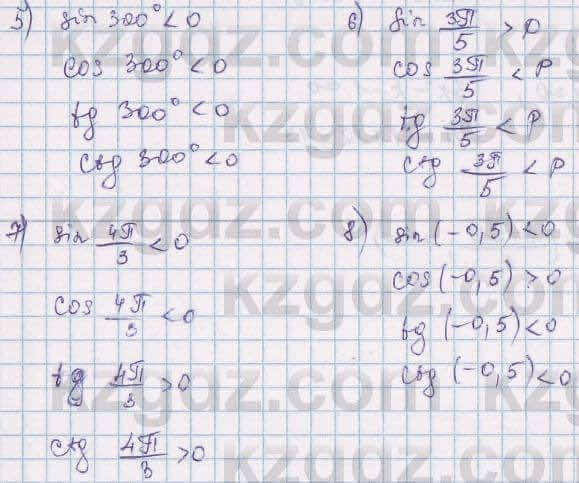 5) sin 300° < 0
cos 300° < 0
tg 300° < 0
ctg 300° < 0
6) sin 3π/5 > 0
cos 3π/5 < P
tg 3π/5 < P
ctg 3π/5 < P
7) sin 4π/3 < 0
cos 4π/3 < 0
tg 4π/3 > 0
ctg 4π/3 > 0
8) sin (-0,5) < 0
cos (-0,5) > 0
tg (-0,5) < 0
ctg (-0,5) < 0
kzgdz.com